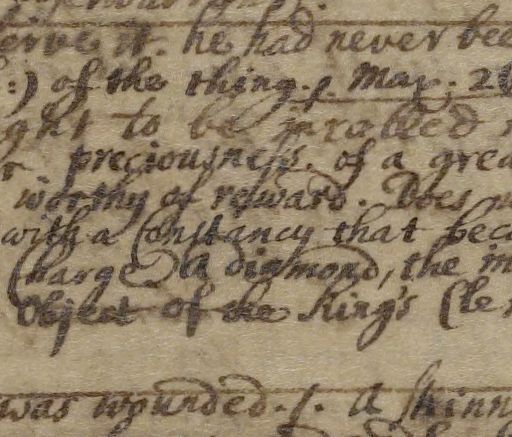 erve it. he had never bee
:) of the thing. s May. 2
ght to be prabled
r preciousness. of a grea
worthy of reward. Does n
with a Constancy that beca
Charge. A diamond, the in
object of the King's Cle
was wounded. s. A skinn